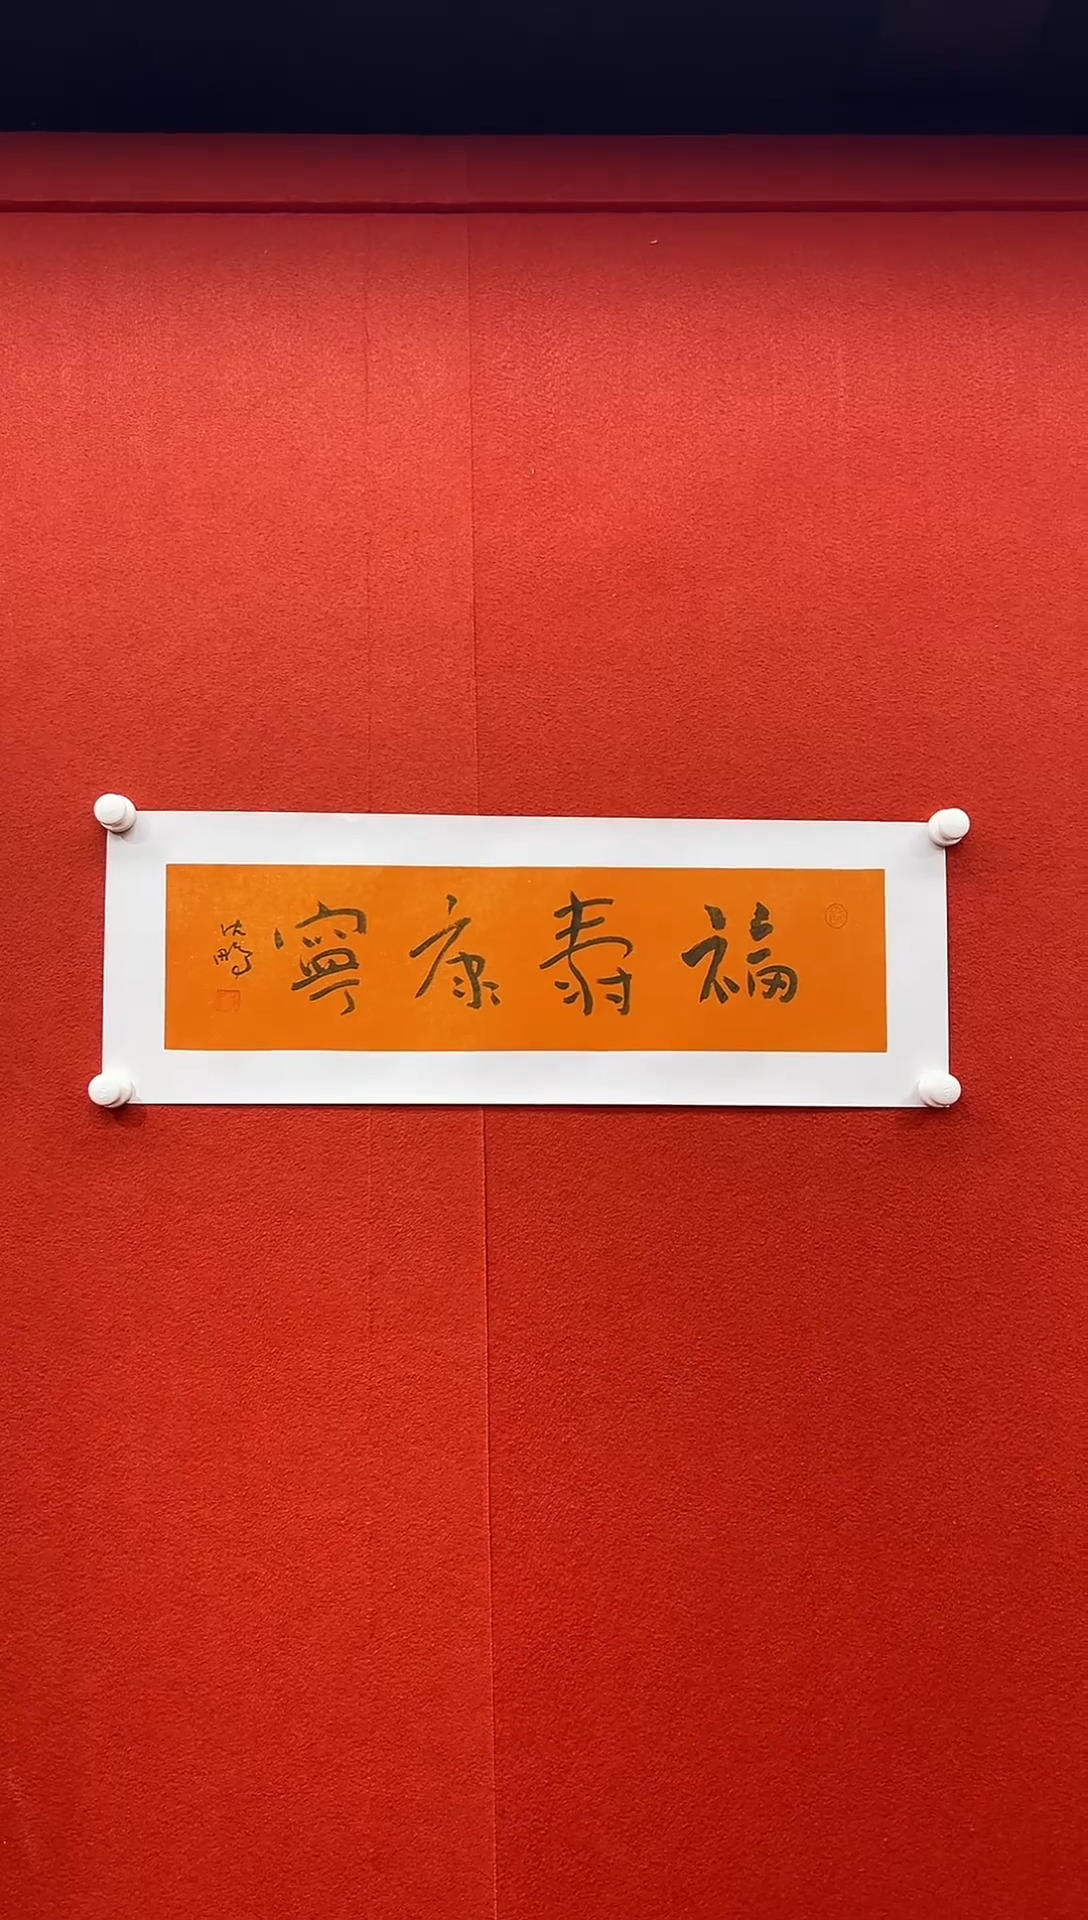 福壽康寧
沈鵬